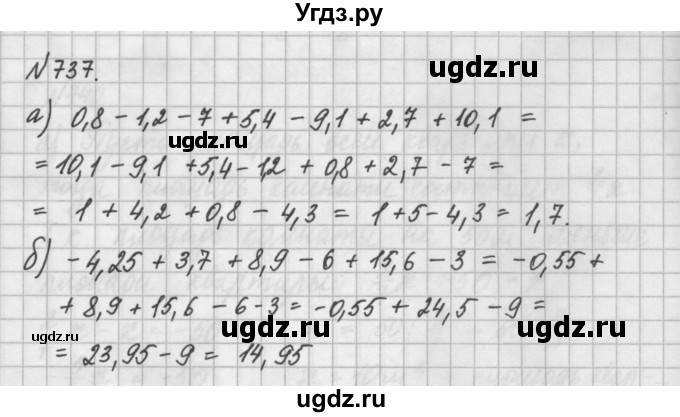 Угдз.ру
№737.
ugdz.ru
а) 0,8 - 1,2 - 7 + 5,4 - 9,1 + 2,7 + 10,1 =
ugdz.ru
= 10,1 - 9,1 + 5,4 - 1,2 + 0,8 + 2,7 - 7 =
= 1 + 4,2 + 0,8 - 4,3 = 1 + 5 - 4,3 = 1,7.
ugdz.ru
б) - 4,25 + 3,7 + 8,9 - 6 + 15,6 - 3 = -0,55 +
+ 8,9 + 15,6 - 6 - 3 = -0,55 + 24,5 - 9 =
ugdz.ru
ugdz.ru
= 23,95 - 9 = 14,95
ugdz.ru